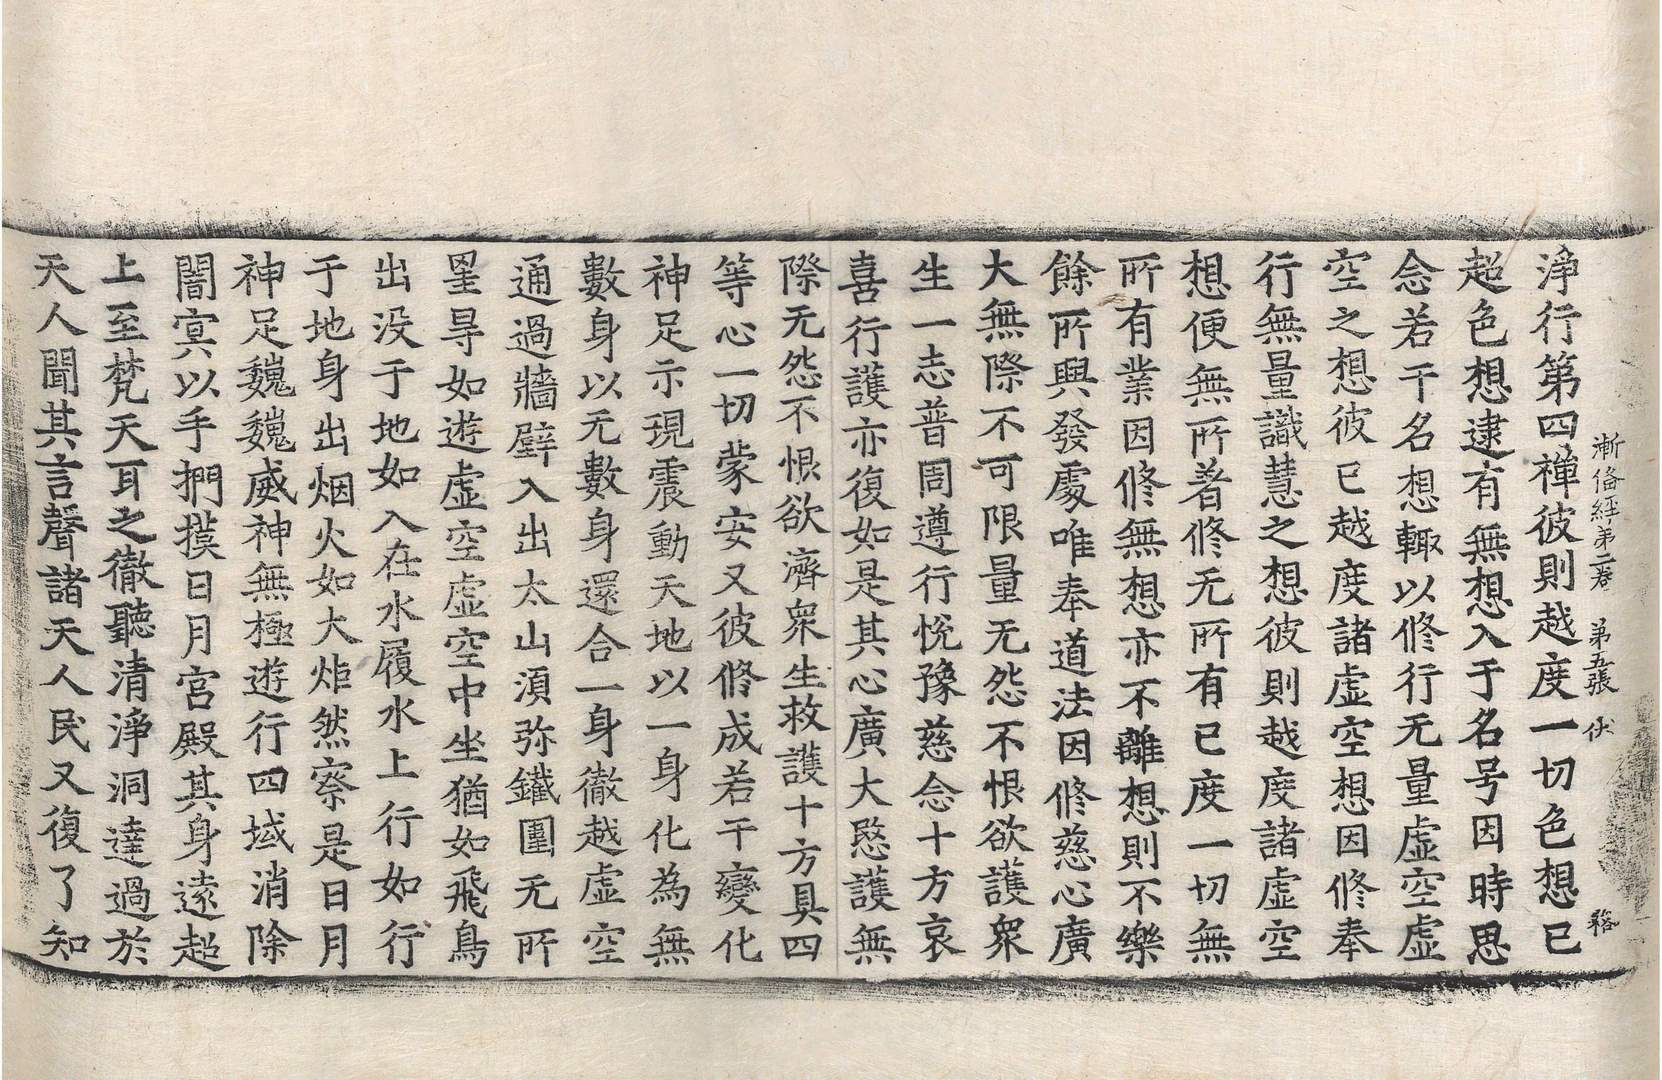 漸俻経第二卷　第五張　伏　
淨行第四禪彼則越度一切色想已
超色想逮有無想入于名号因時思
念若干名想輙以修行无量虛空虛
空之想彼已越度諸虛空想因修奉
行無量識慧之想彼則越度諸虛空
想便無所著修无所有已度一切無
所有業因修無想亦不離想則不樂
餘所興發處唯奉道法因修慈心廣
大無際不可限量无怨不恨欲護衆
生一志普周遵行悅豫慈念十方哀
喜行護亦復如是其心廣大愍護無
際无怨不恨欲濟衆生救護十方具四
等心一切蒙安又彼修成若干變化
神足示現震動天地以一身化為無
數身以无數身還合一身徹越虛空
通過牆壁入出太山湏弥鐵圍无所
罣㝵如遊虛空虛空中坐猶如飛鳥
出没于地如入在水履水上行如行
于地身出烟火如大炬然察是日月
神足巍巍威神無極遊行四域消除
闇冥以手捫摸日月宮殿其身遠超
上至梵天天耳之徹聽清淨洞達過於
天人聞其言聲諸天人民又復了知